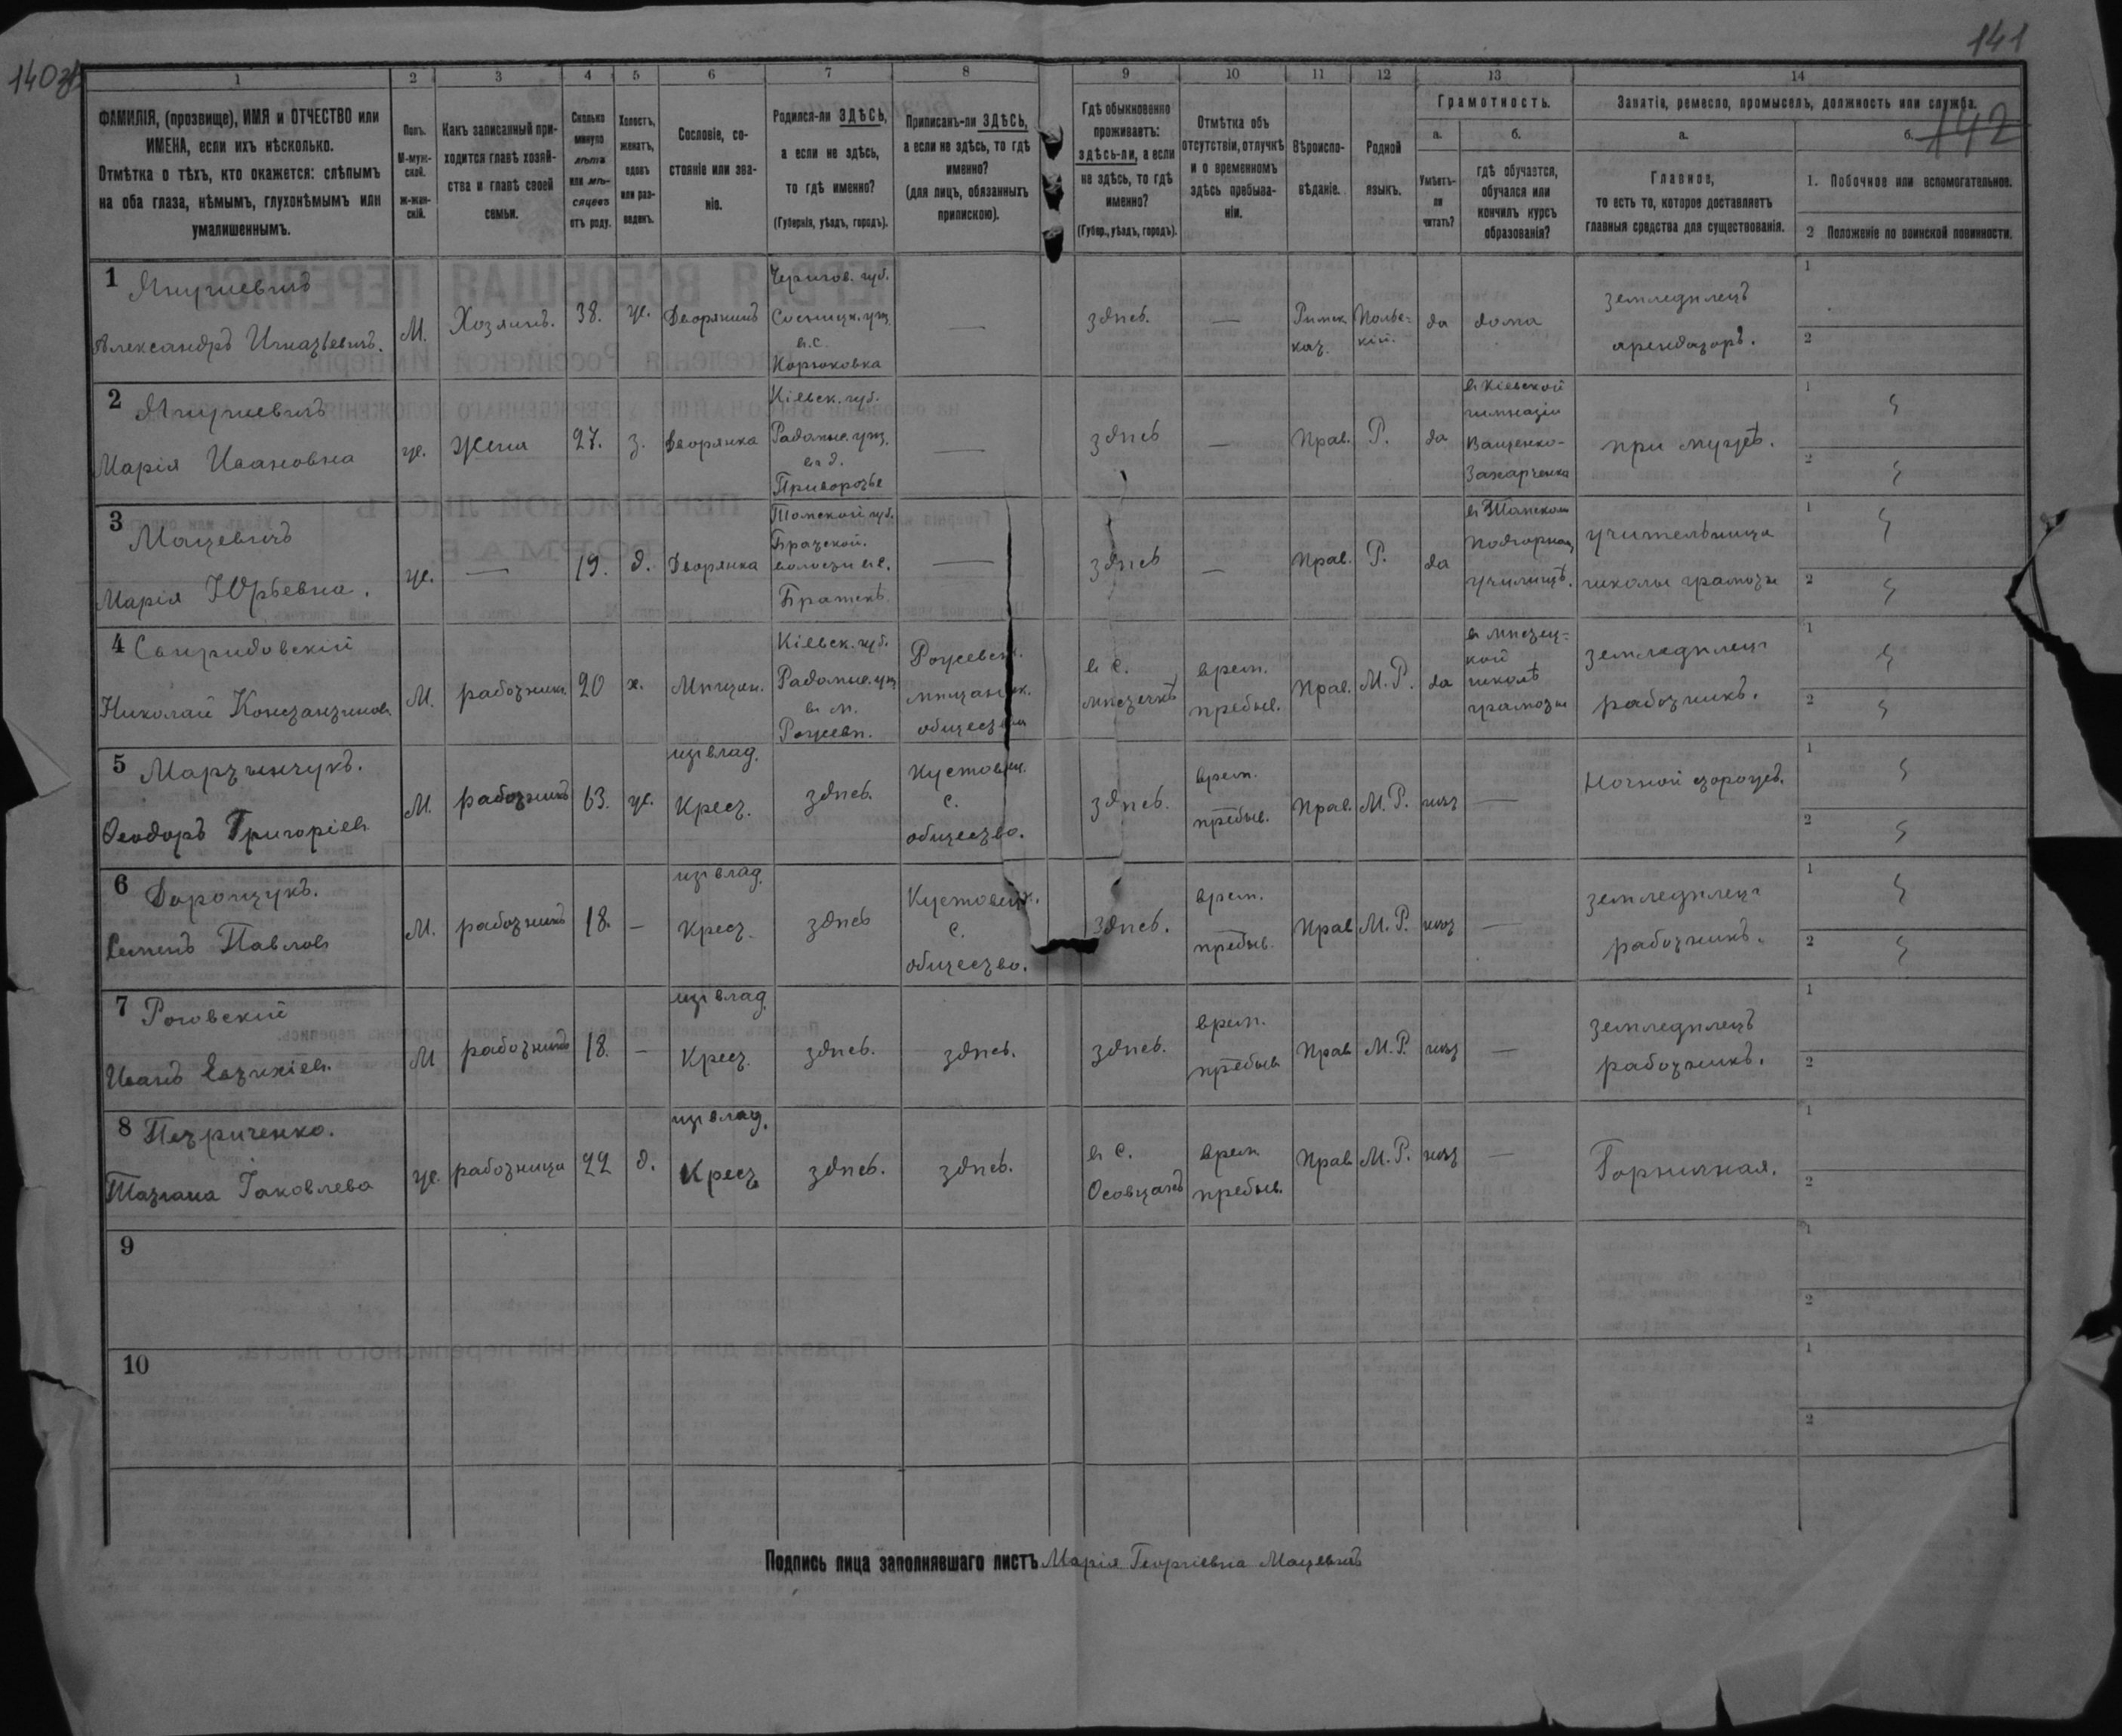 140об
141
142
1 2 3 4 5 6 7 8 9 10 11 12 13 14
ФАМИЛІЯ, (прозвище), ИМЯ и ОТЧЕСТВО или
ИМЕНА, если ихъ нѣсколько.
Отмѣтка о тѣхъ, кто окажется: слѣпымъ
на оба глаза, нѣмымъ, глухонѣмымъ или
умалишеннымъ.
Полъ.
М-муж-
ской.
ж-жен-
скій.
Какъ записанный при-
ходится главѣ хозяй-
ства и главѣ своей
семьи.
Сколько
минуло
лѣтъ
или мѣ-
сяцевъ
отъ роду.
Холостъ,
женатъ,
вдовъ
или раз-
веденъ.
Сословіе, со-
стояніе или зва-
ніе.
Родился-ли ЗДѢСЬ,
а если не здѣсь,
то гдѣ именно?
(Губернія, уѣздъ, городъ).
Приписанъ-ли ЗДѢСЬ,
а если не здѣсь, то гдѣ
именно?
(для лицъ, обязанныхъ
припискою).
Гдѣ обыкновенно
проживаетъ:
здѣсь-ли, а если
не здѣсь, то гдѣ
именно?
(Губер., уѣздъ, городъ).
Отмѣтка объ
отсутствіи, отлучкѣ
и о временномъ
здѣсь пребыва-
ніи.
Вѣроиспо-
вѣданіе.
Родной
языкъ.
Грамотность.
а.
Умѣетъ-
ли
читать?
б.
гдѣ обучается,
обучался или
кончилъ курсъ
образованія?
Занятіе, ремесло, промыселъ, должность или служба.
а.
Главное,
то есть то, которое доставляетъ
главныя средства для существованія.
б.
1. Побочное или вспомогательное.
2 Положеніе по воинской повинности.
1
Александръ Игнатьевичъ.
М.
Хозяинъ.
38.
ж.
Дворянинъ
Чернигов. губ.
Сосницк. уѣз.
въ с.
Корюковка
—
здѣсь.
—
Римск.
кат.
Поль-
скій.
да
дома
земледѣлецъ
арендаторъ.
1
2
2
Марія Ивановна
ж.
жена
27.
з.
Дворянка
Кіевск. губ.
Радомыс. уѣз.
въ д.
Приворотье
—
здѣсь
—
Прав.
Р.
да
въ Кіевской
гимназіи
Ващенко-
Захарченка
при мужѣ.
1
2
3
Мацевичъ
Марія Юрьевна.
ж.
—
19.
д.
Дворянка
Томской губ.
Братской.
волости въ с.
Братскѣ.
—
здѣсь
—
Прав.
Р.
да
училищѣ.
учительница
школы грамоты
1
2
4
Свиридовскій
Николай Константиновъ
М.
работникъ
20
х.
Мѣщан.
Кіевск. губ.
Радомыс. уѣз.
въ м.
Рожевѣ.
Рожевск.
мѣщанск.
общества
въ с.
мѣстечкѣ
врем.
пребыв.
Прав.
М. Р.
да
въ мѣстец-
кой
школѣ
грамоты
земледѣлецъ
работникъ.
1
2
5
Мартынчукъ.
Ѳеодоръ Григоріев.
М.
работникъ
63.
ж.
изъ влад.
Крест.
здѣсь.
с.
общество.
здѣсь.
врем.
пребыв.
Прав.
М. Р.
нѣт
—
Ночной сторожъ.
1
2
6
Дорощукъ.
Семенъ Павловъ
М.
работникъ
18.
—
изъ влад.
Крест.
здѣсь
с.
общество.
здѣсь.
врем.
пребыв.
Прав
М. Р.
нѣт
—
земледѣлецъ
работникъ.
1
2
7
Роговскій
Иванъ Евтихіев.
М
работникъ
18.
—
изъ влад.
Крест.
здѣсь.
здѣсь.
здѣсь.
врем.
пребыв
Прав
М. Р.
нѣт
—
земледѣлецъ
работникъ.
1
2
8
Петриченко.
Татіана Іаковлева
ж.
работница
22
д.
изъ влад.
Крест
здѣсь.
здѣсь.
въ с.
Осовцахъ
врем
пребыв.
Прав
М. Р.
нѣт
—
Горничная.
1
2
9
1
2
10
1
2
Подпись лица заполнявшаго листъ Марія Георгіевна Мацевичъ